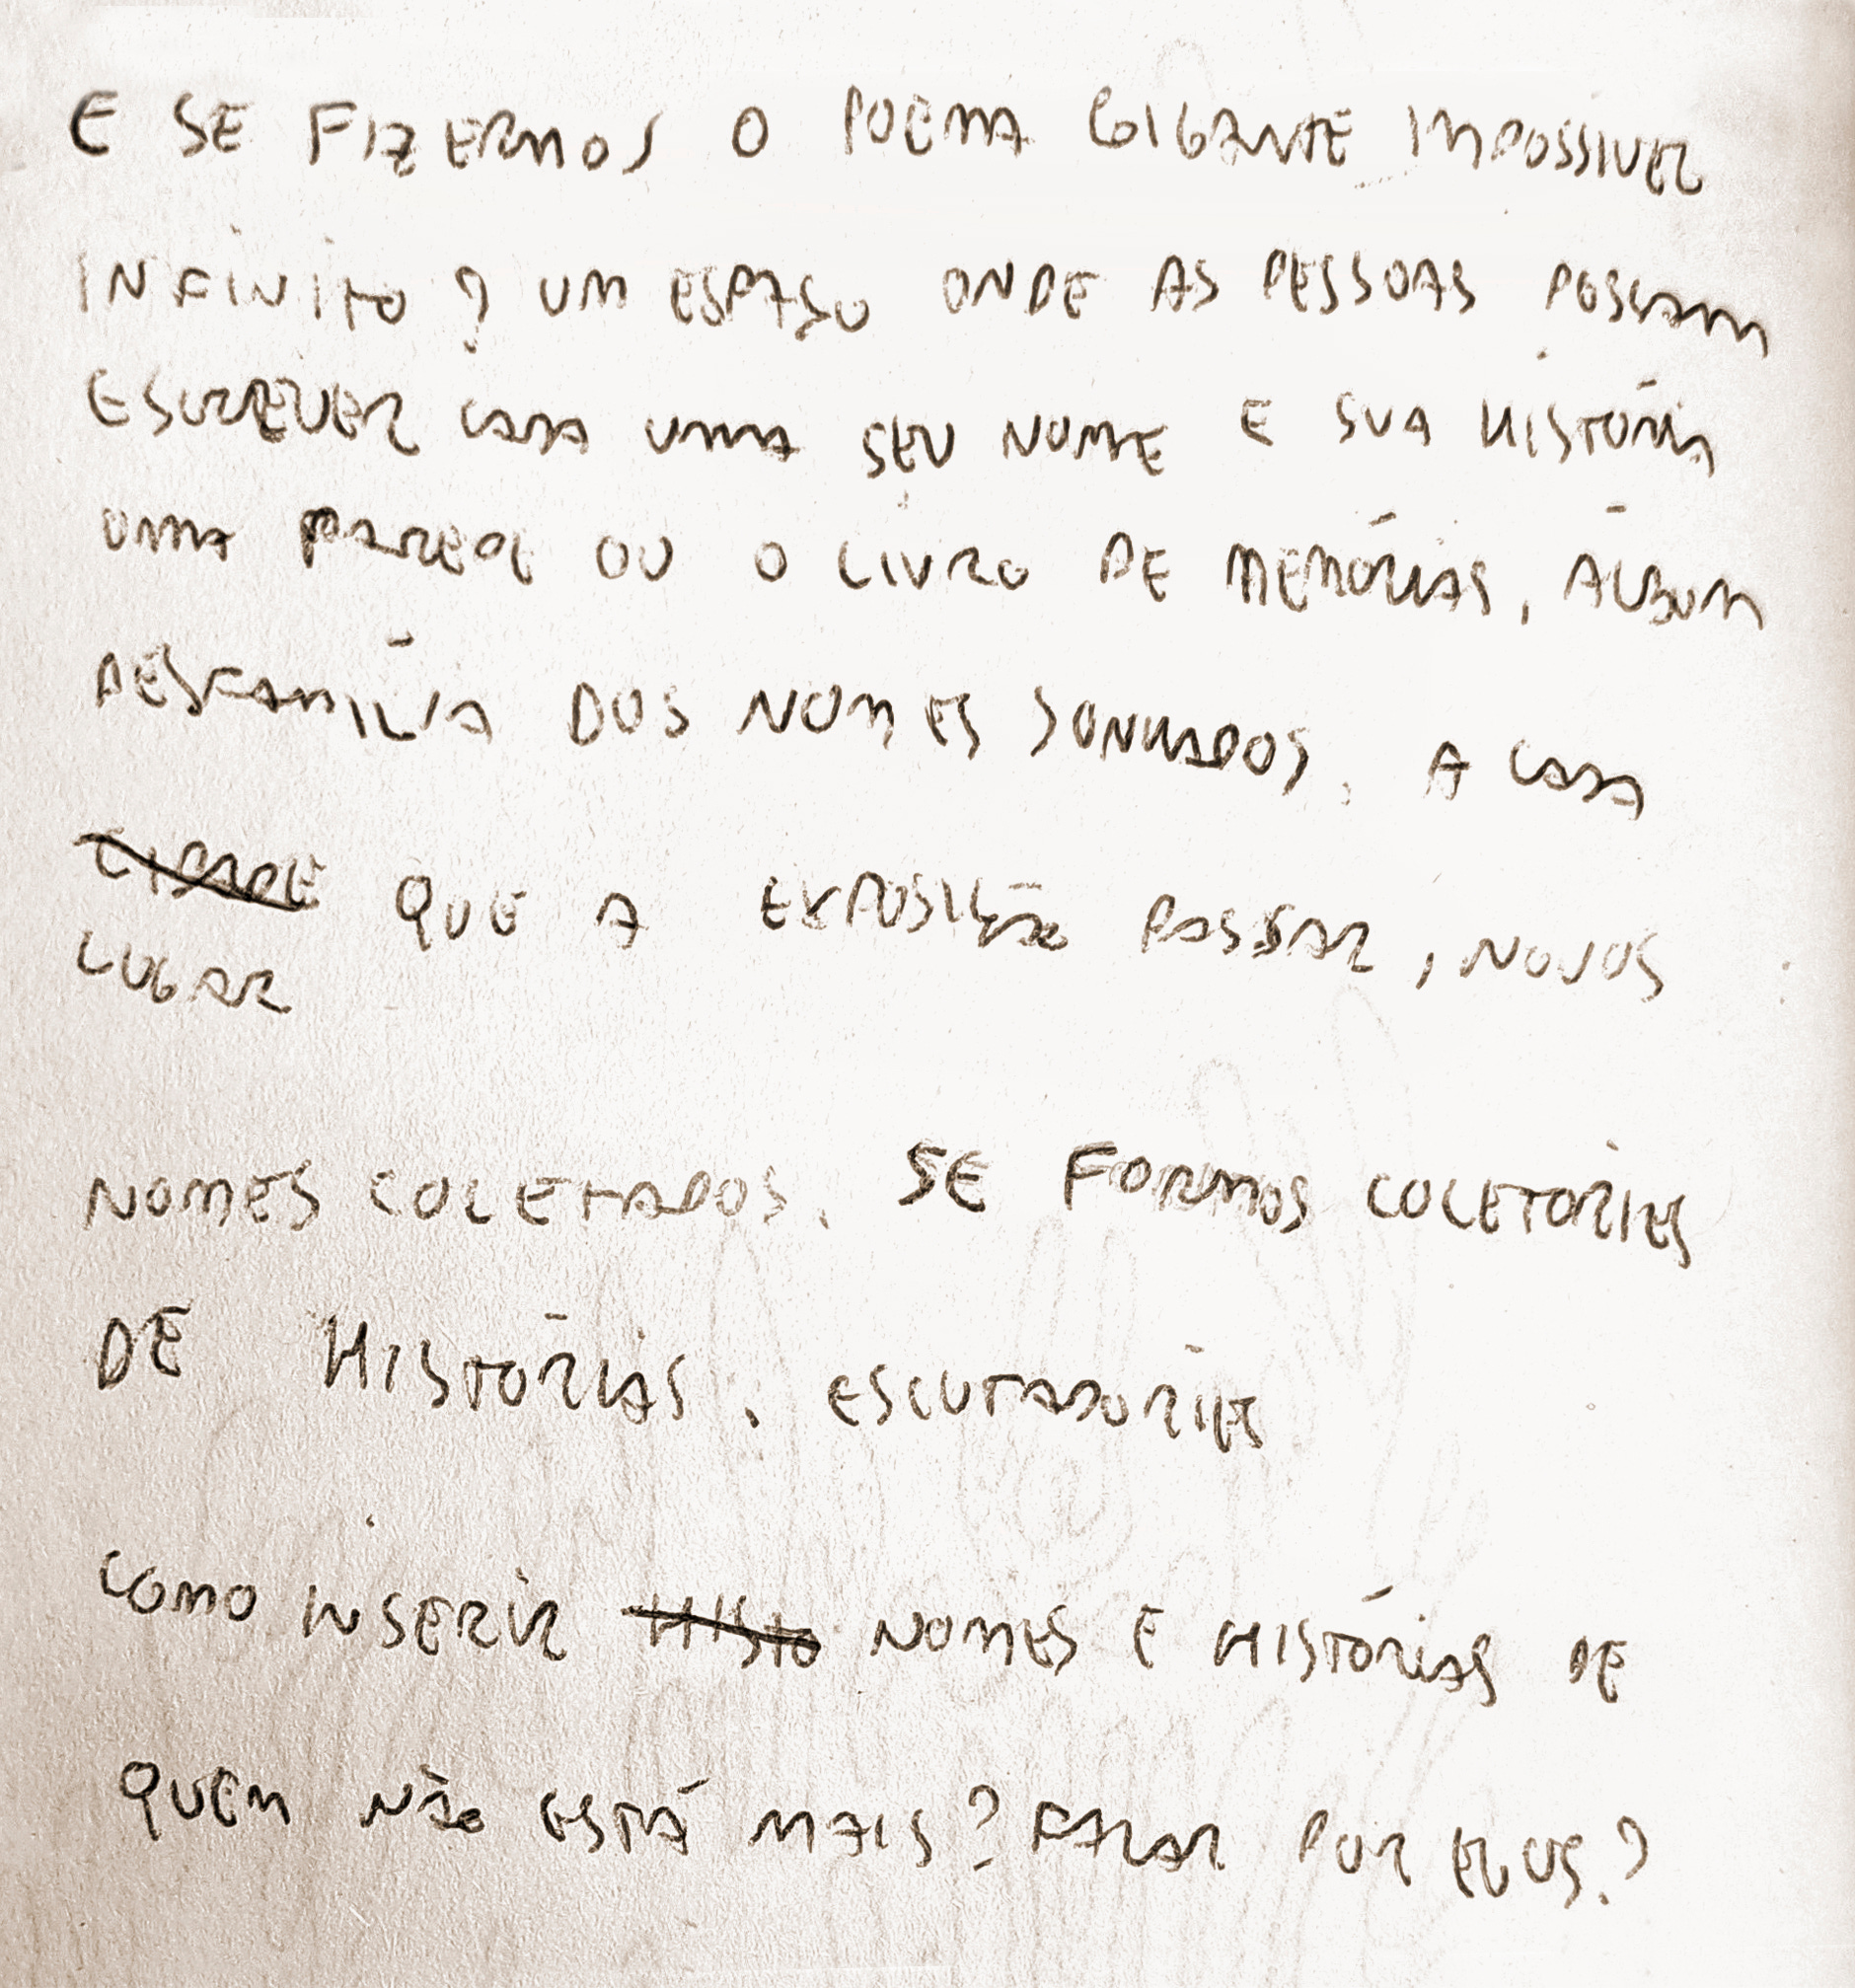 E SE FIZERMOS O POEMA GIGANTE IMPOSSIVEL
INFINITO? UM ESPAÇO ONDE AS PESSOAS POSSAM
ESCREVER CADA UMA SEU NOME E SUA HISTÓRIA
UMA PAREDE OU O LIVRO DE MEMÓRIAS, ÁLBUM
DESFAMÍLIA DOS NOMES SONHADOS. A CADA
CIDADE QUE A EXPOSIÇÃO PASSAR, NOVOS
LUGAR
NOMES COLETADOS. SE FORMOS COLETORIES
DE HISTÓRIAS. ESCUTADORIES
COMO INSERIR HISTO NOMES E HISTÓRIAS DE
QUEM NÃO ESTÁ MAIS? FALAR POR ELUS?